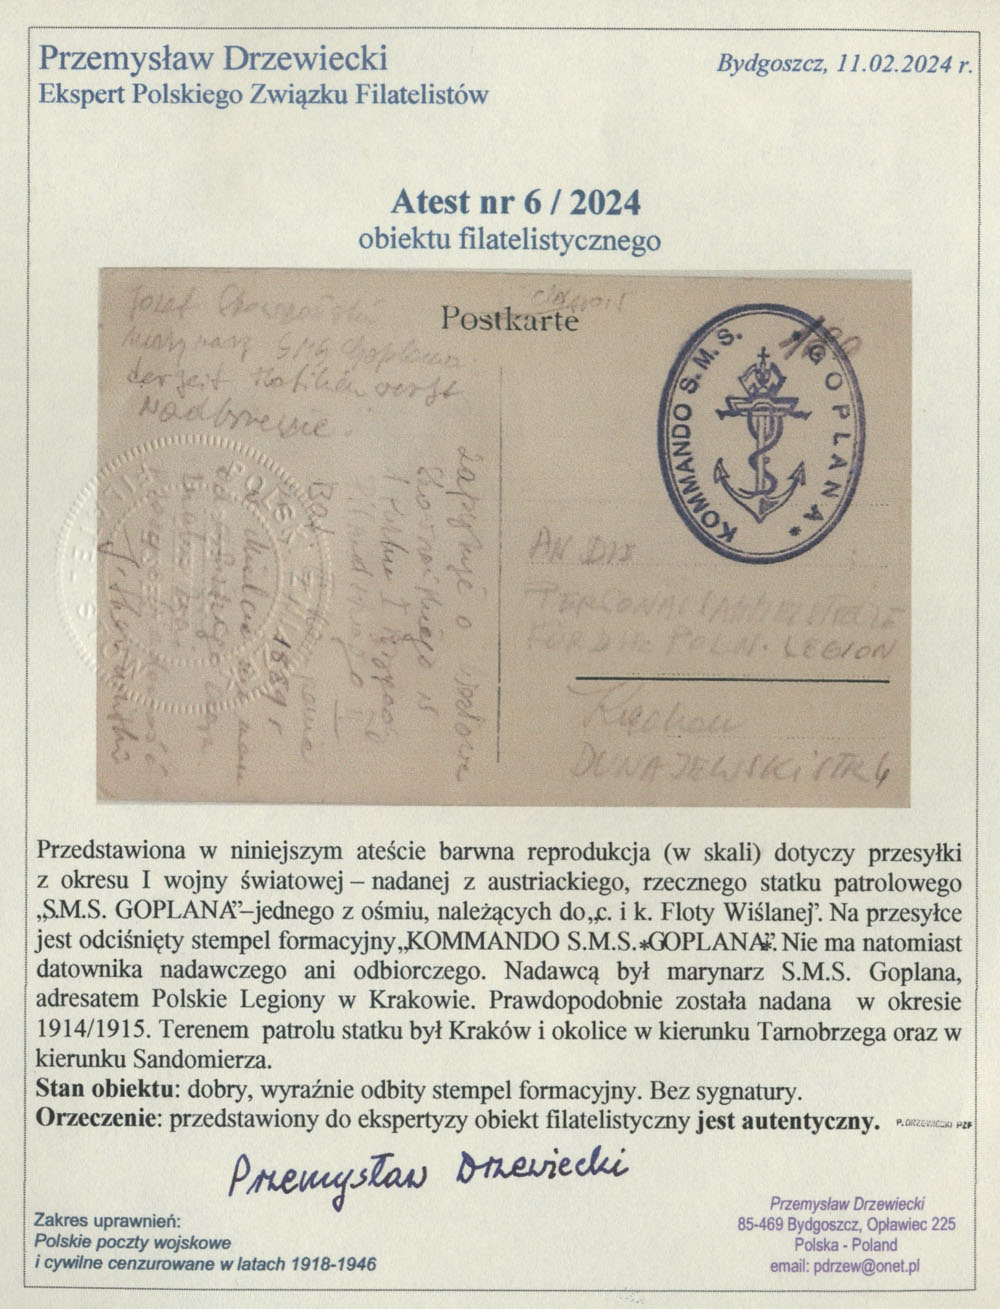 Przemysław Drzewiecki
Ekspert Polskiego Związku Filatelistów
Bydgoszcz, 11.02.2024 r.
Atest nr 6 / 2024
obiektu filatelistycznego
Postkarte
KOMMANDO S.M.S. * GOPLANA *
Józef
marynarz SMS Goplana
derzeit
Nadbrzezie.
Zapytuje o
1889 r
AN DIE
FÜR DIE POLN. LEGION
Krakau
DUNAJEWSKISTR 4
Przedstawiona w niniejszym ateście barwna reprodukcja (w skali) dotyczy przesyłki
z okresu I wojny światowej – nadanej z austriackiego, rzecznego statku patrolowego
„S.M.S. GOPLANA”–jednego z ośmiu, należących do „c. i k. Floty Wiślanej”. Na przesyłce
jest odciśnięty stempel formacyjny „KOMMANDO S.M.S.*GOPLANA*”. Nie ma natomiast
datownika nadawczego ani odbiorczego. Nadawcą był marynarz S.M.S. Goplana,
adresatem Polskie Legiony w Krakowie. Prawdopodobnie została nadana w okresie
1914/1915. Terenem patrolu statku był Kraków i okolice w kierunku Tarnobrzega oraz w
kierunku Sandomierza.
Stan obiektu: dobry, wyraźnie odbity stempel formacyjny. Bez sygnatury.
Orzeczenie: przedstawiony do ekspertyzy obiekt filatelistyczny jest autentyczny.
P. DRZEWIECKI PZF
Przemysław Drzewiecki
Zakres uprawnień:
Polskie poczty wojskowe
i cywilne cenzurowane w latach 1918-1946
Przemysław Drzewiecki
85-469 Bydgoszcz, Opławiec 225
Polska - Poland
email: pdrzew@onet.pl